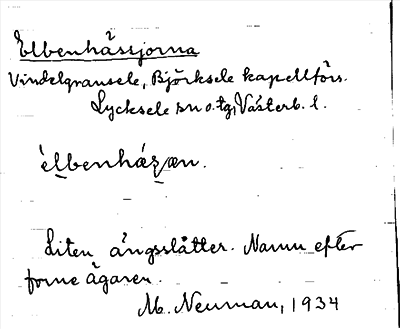 Elbenhässjorna
Vindelgransele, Björksele kapellförs.
Lycksele sn o. tg, Västerb. l.
èlbenhásʒæn.
Liten ängsslåtter. Namn efter
forne ägaren.
M. Neuman, 1934